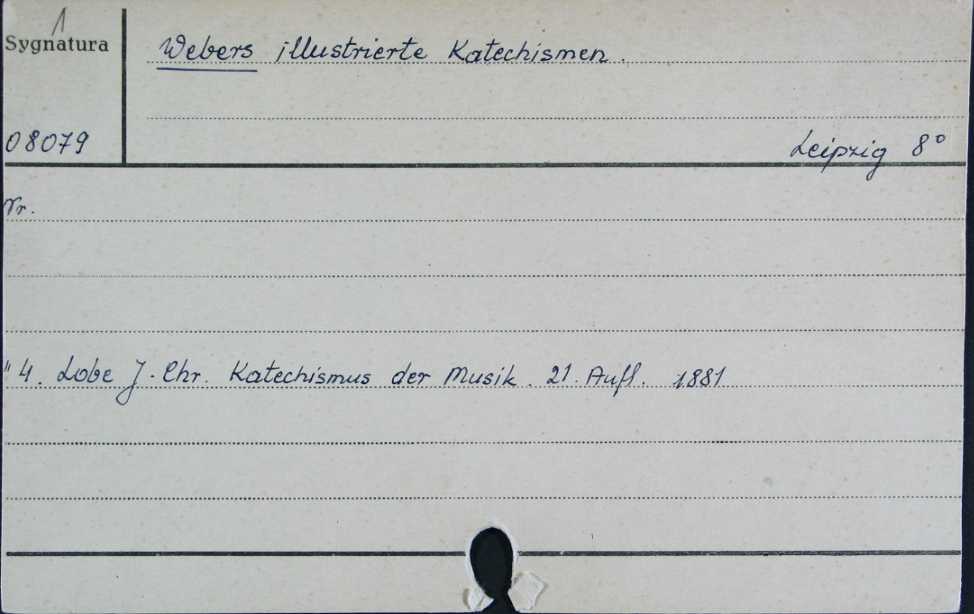 1
Sygnatura
Webers illustrierte Katechismen.
08079
Leipzig 8°
Nr.
" 4. Lobe J. Chr. Katechismus der Musik. 21. Aufl. 1881